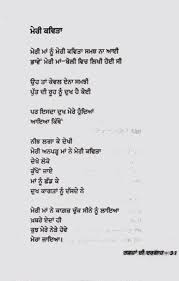 ਮੇਰੀ ਕਵਿਤਾ
ਮੇਰੀ ਮਾਂ ਨੂੰ ਮੇਰੀ ਕਵਿਤਾ ਸਮਝ ਨਾ ਆਈ
ਭਾਵੇਂ ਮੇਰੀ ਮਾਂ-ਬੋਲੀ ਵਿਚ ਲਿਖੀ ਹੋਈ ਸੀ
ਉਹ ਤਾਂ ਕੇਵਲ ਏਨਾ ਸਮਝੀ
ਪੁੱਤ ਦੀ ਰੂਹ ਨੂੰ ਦੁਖ ਹੈ ਕੋਈ
ਪਰ ਇਸਦਾ ਦੁਖ ਮੇਰੇ ਹੁੰਦਿਆਂ
ਆਇਆ ਕਿੱਥੋਂ
ਨੀਝ ਲਗਾ ਕੇ ਦੇਖੀ
ਮੇਰੀ ਅਨਪੜ੍ਹ ਮਾਂ ਨੇ ਮੇਰੀ ਕਵਿਤਾ
ਦੇਖੋ ਲੋਕੋ
ਕੁੱਖੋਂ ਜਾਏ
ਮਾਂ ਨੂੰ ਛੱਡ ਕੇ
ਦੁਖ ਕਾਗਤਾਂ ਨੂੰ ਦੱਸਦੇ ਨੇ
ਮੇਰੀ ਮਾਂ ਨੇ ਕਾਗਜ਼ ਚੁੱਕ ਸੀਨੇ ਨੂੰ ਲਾਇਆ
ਖ਼ਬਰੇ ਏਦਾਂ ਹੀ
ਕੁਝ ਮੇਰੇ ਨੇੜੇ ਹੋਵੇ
ਮੇਰਾ ਜਾਇਆ।